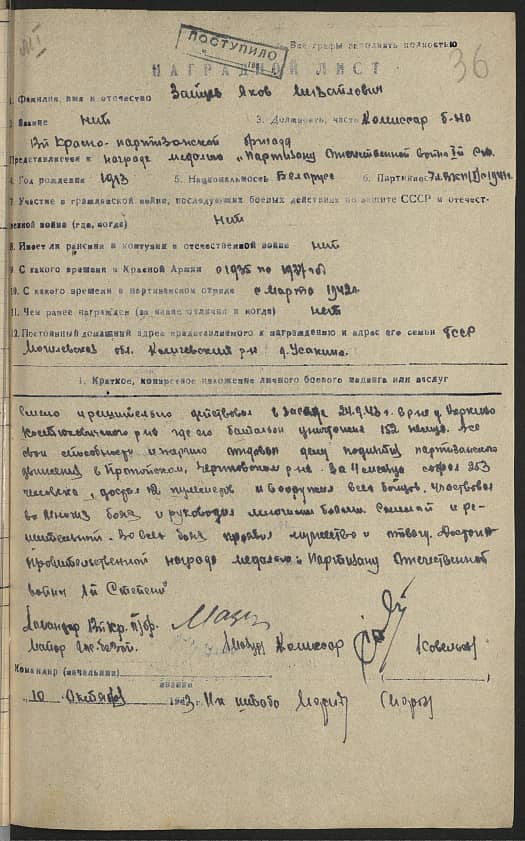 ПОСТУПИЛО
Все графы заполнять полностью
36
НАГРАДНОЙ ЛИСТ
1. Фамилия, имя и отчество Зайцев Яков Михайлович
2. Звание нет 3. Должность, часть Комиссар б-на
13й Красно-партизанской бригада
Представляется к награде медалью „Партизану Отечественной войны" I й Ст.
4. Год рождения 1913 5. Национальность Беларус 6. Партийность
7. Участие в гражданской войне, последующих боевых действиях по защите СССР и отечест-
венной войне (где, когда) нет
8. Имеет ли ранения и контузии в отечественной войне нет
9. С какого времени в Красной Армии с 1935 по 1937 год
10. С какого времени в партизанском отряде с Марта 1942г.
11. Чем ранее награжден (за какие отличия и когда) нет
12. Постоянный домашний адрес представляемого к награждению и адрес его семьи БССР
Могилевская обл. Кличевский р-н д. Усакино.
1. Краткое, конкретное изложение личного боевого подвига или заслуг
Смело и решительно действовал в засаде 24.9.43 г. в р-не д.
Костюковичского р-на где его батальон уничтожил 152 немца. Все
свои способности и партии отдавал делу поднятия партизанского
движения в Пропойском, Чериковском р-не. За 4 месяца собрал 253
человека, достал 12 пулеметов и вооружил всех бойцов. Участвовал
во многих боях и руководил многими боями. Смелый и ре-
шительный. Во всех боях проявил мужество и отвагу. Достоин
правительственной награды медалью „Партизану Отечественной
войны I й Степени"
Командир 13й Кр. п/бр.
Майор Гос. Без.
Комиссар
Командир (начальник)
звание
„10" Октября 1943 г. Нач штаба